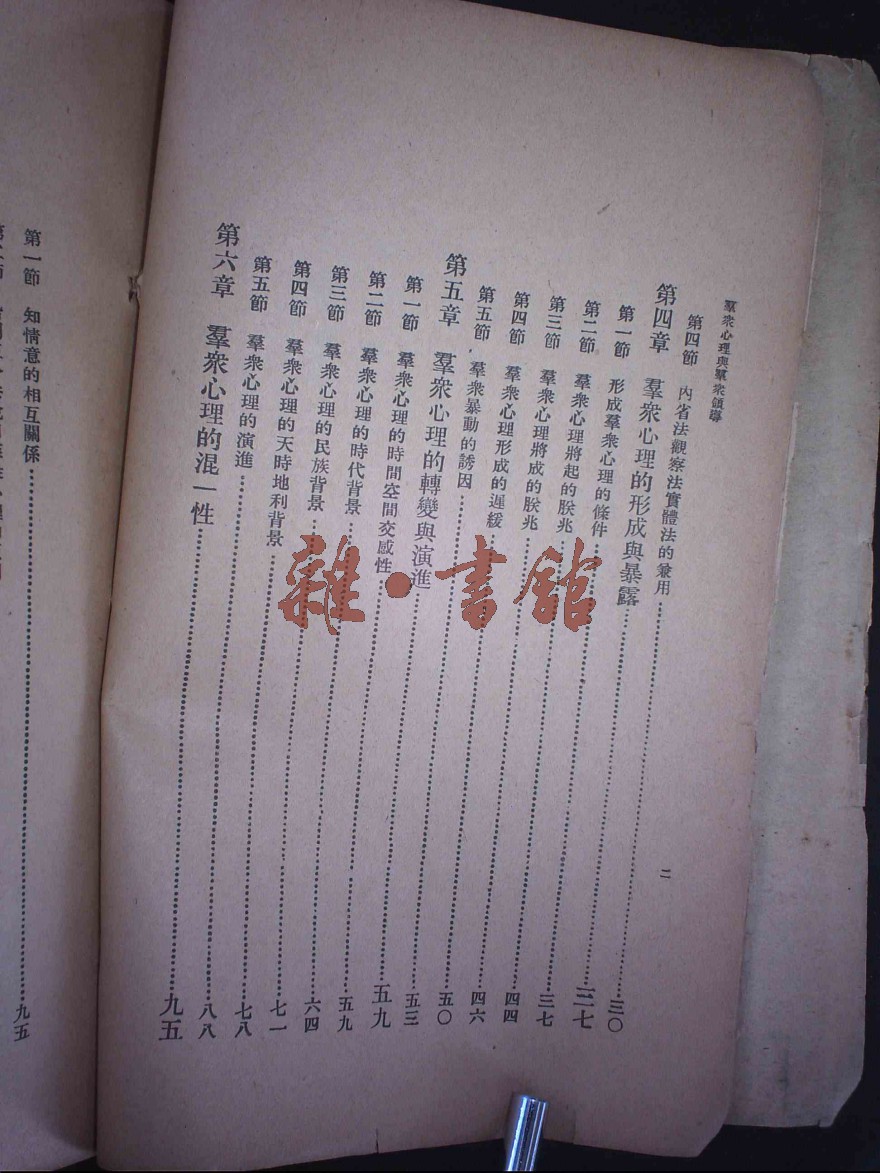 羣衆心理與羣衆領導 二
第四節 內省法觀察法實體法的兼用 三〇
第四章 羣衆心理的形成與暴露 三七
第一節 形成羣衆心理的條件 三七
第二節 羣衆心理將起的朕兆 四四
第三節 羣衆心理將成的朕兆 四六
第四節 羣衆心理形成的遲緩 五〇
第五節 羣衆暴動的誘因 五三
第五章 羣衆心理的轉變與演進 五九
第一節 羣衆心理的時間空間交感性 五九
第二節 羣衆心理的時代背景 六四
第三節 羣衆心理的民族背景 七一
第四節 羣衆心理的天時地利背景 七八
第五節 羣衆心理的演進 八八
第六章 羣衆心理的混一性 九五
第一節 知情意的相互關係 九五
雜·書館